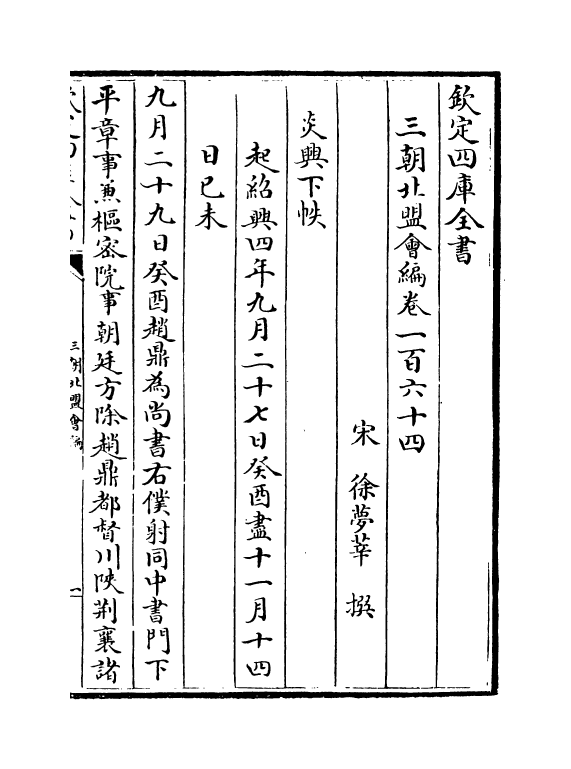 欽定四庫全書
三朝北盟會編卷一百六十四
宋 徐夢莘 撰
炎興下帙
起紹興四年九月二十七日癸酉盡十一月十四
日已未
九月二十九日癸酉趙鼎為尚書右僕射同中書門下
平章事兼樞密院事朝廷方除趙鼎都督川陝荆襄諸
三朝北盟會編
一